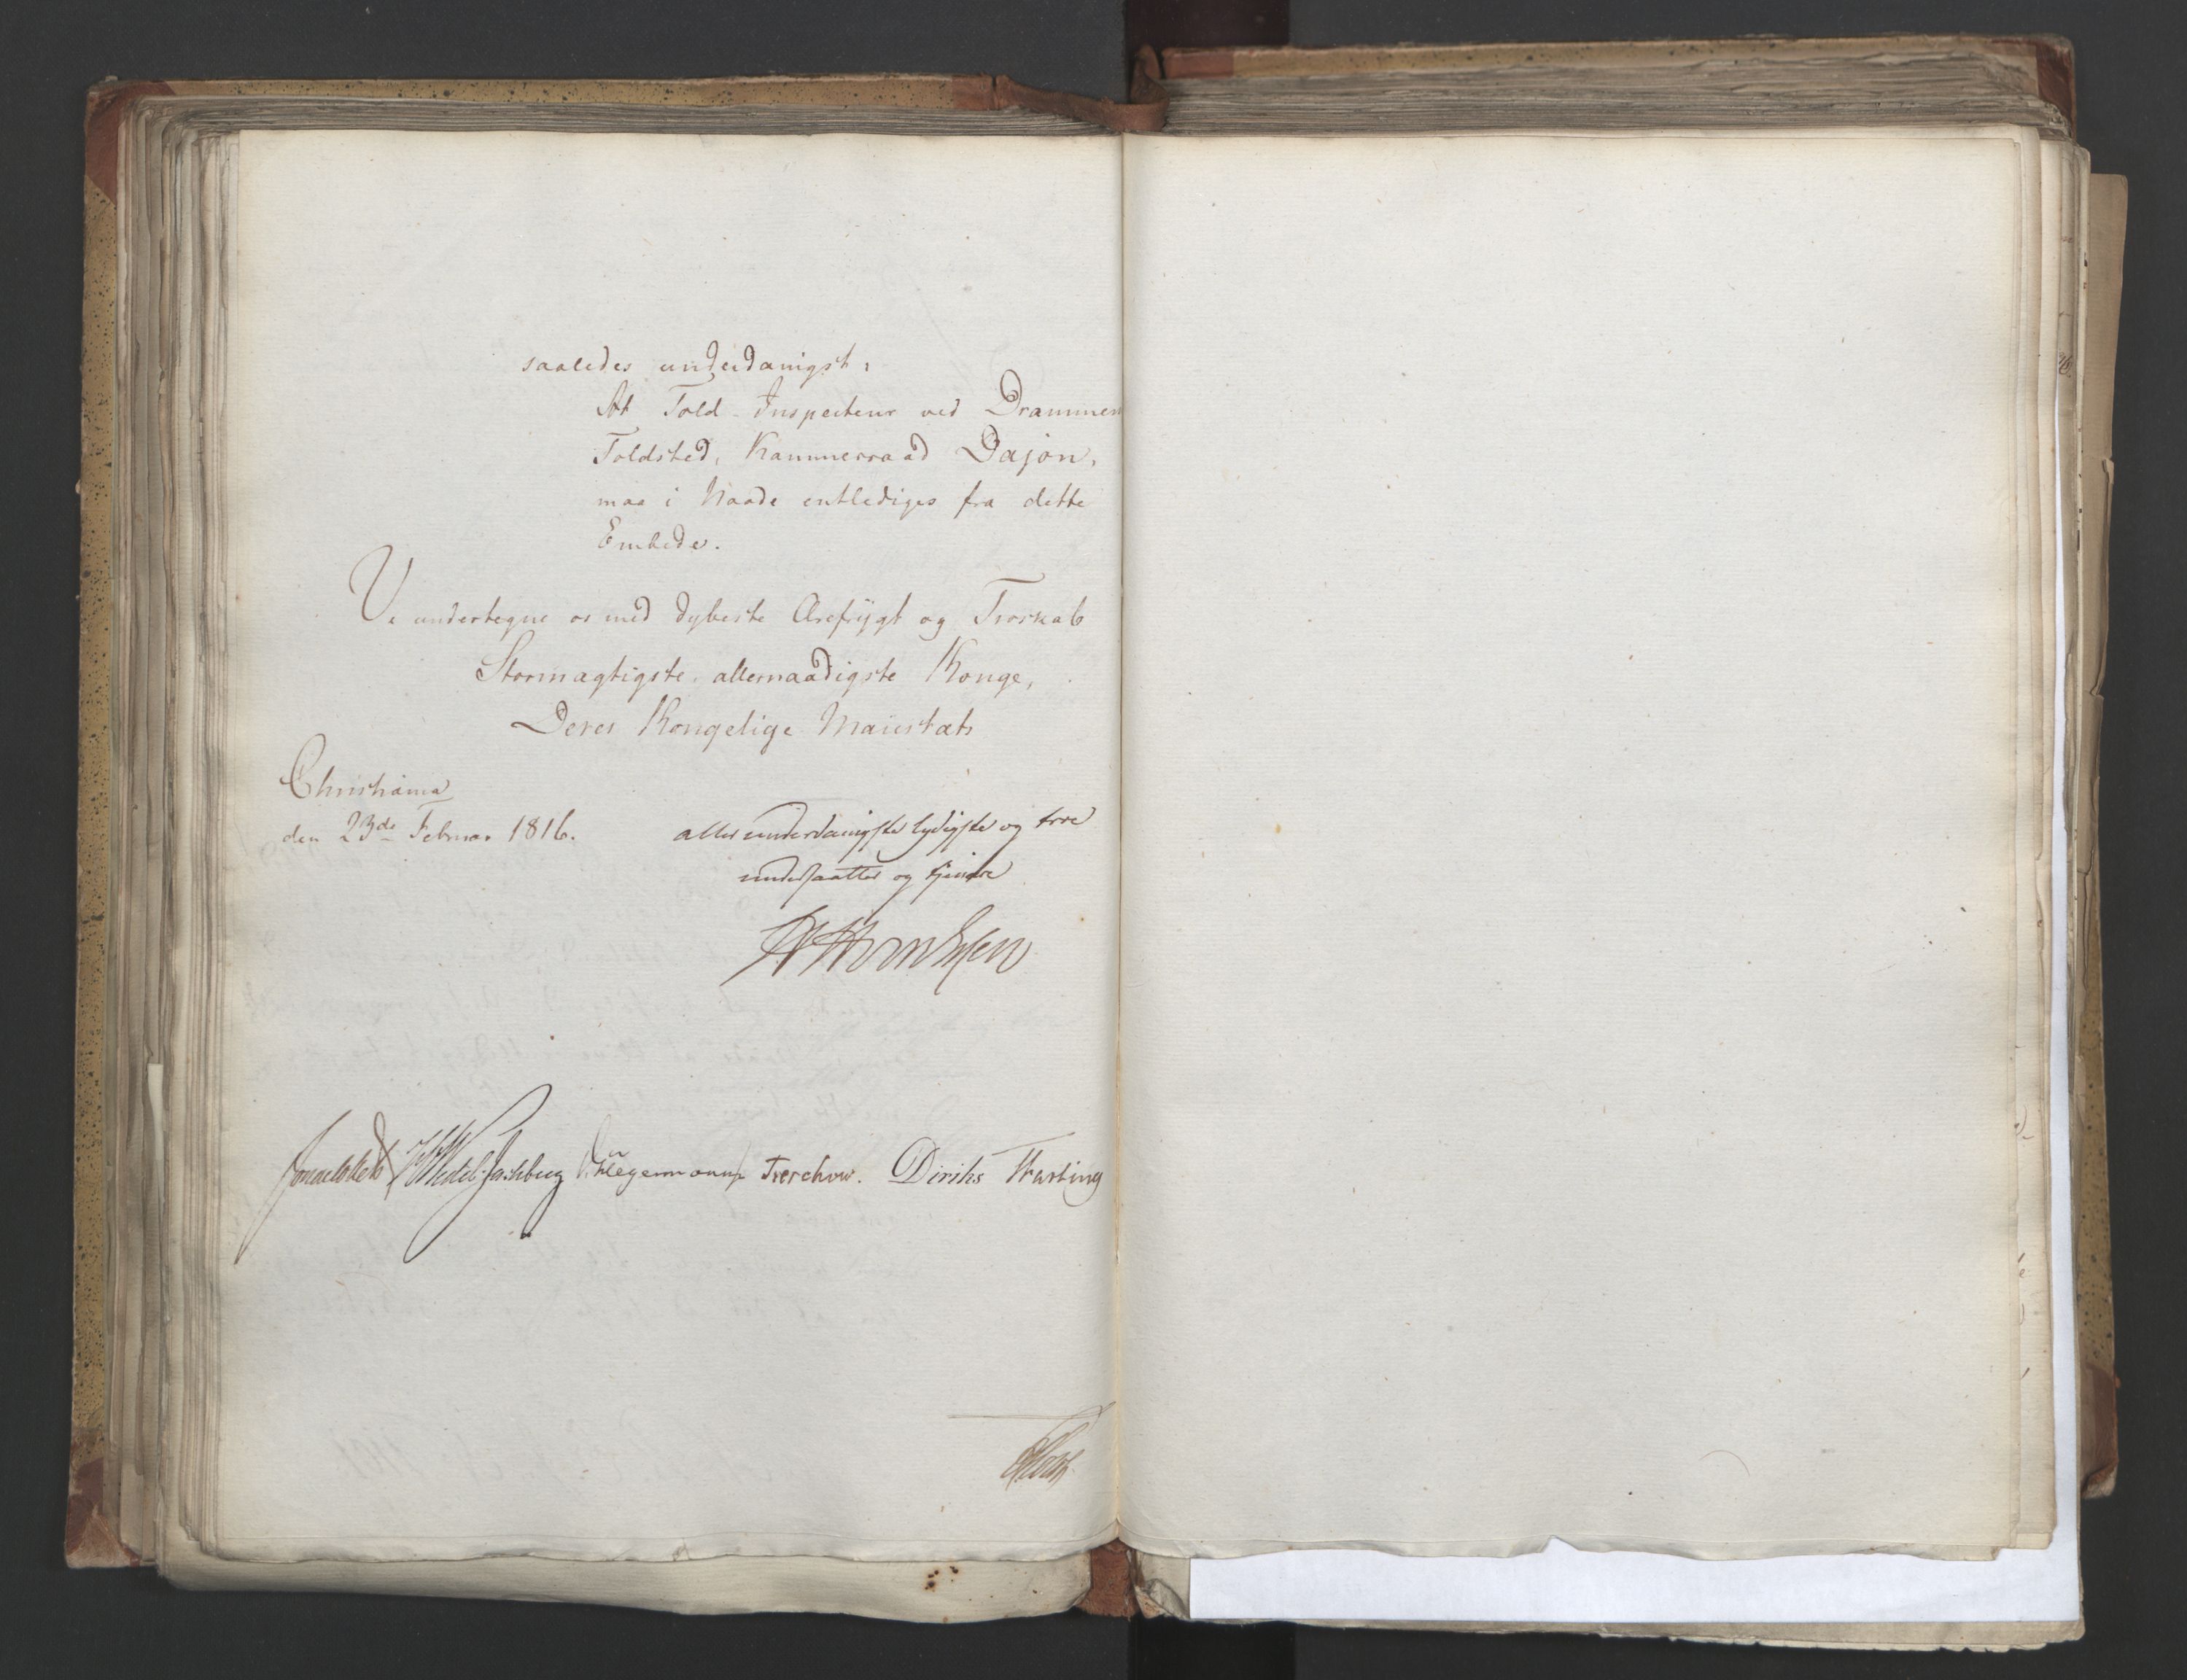 saaledes underdanigst,
At Told-Inspecteur ved Drammen
Toldsted, Kammerraad Dajon,
maa i Naade entlediges fra dette
Embede.
Vi undertegne os med dybeste Ærefrÿgt og Troskab
Stormægtigste, allernaadigste Konge,
Deres Kongelige Maiestæts
Christiania
den 23de Februar 1816.
allerunderdanigste lydigste og troe
undersaatter og tjenere
Sommerhjelm HWedel-Jarlsberg Hegermann Treschow. Diriks Krebs